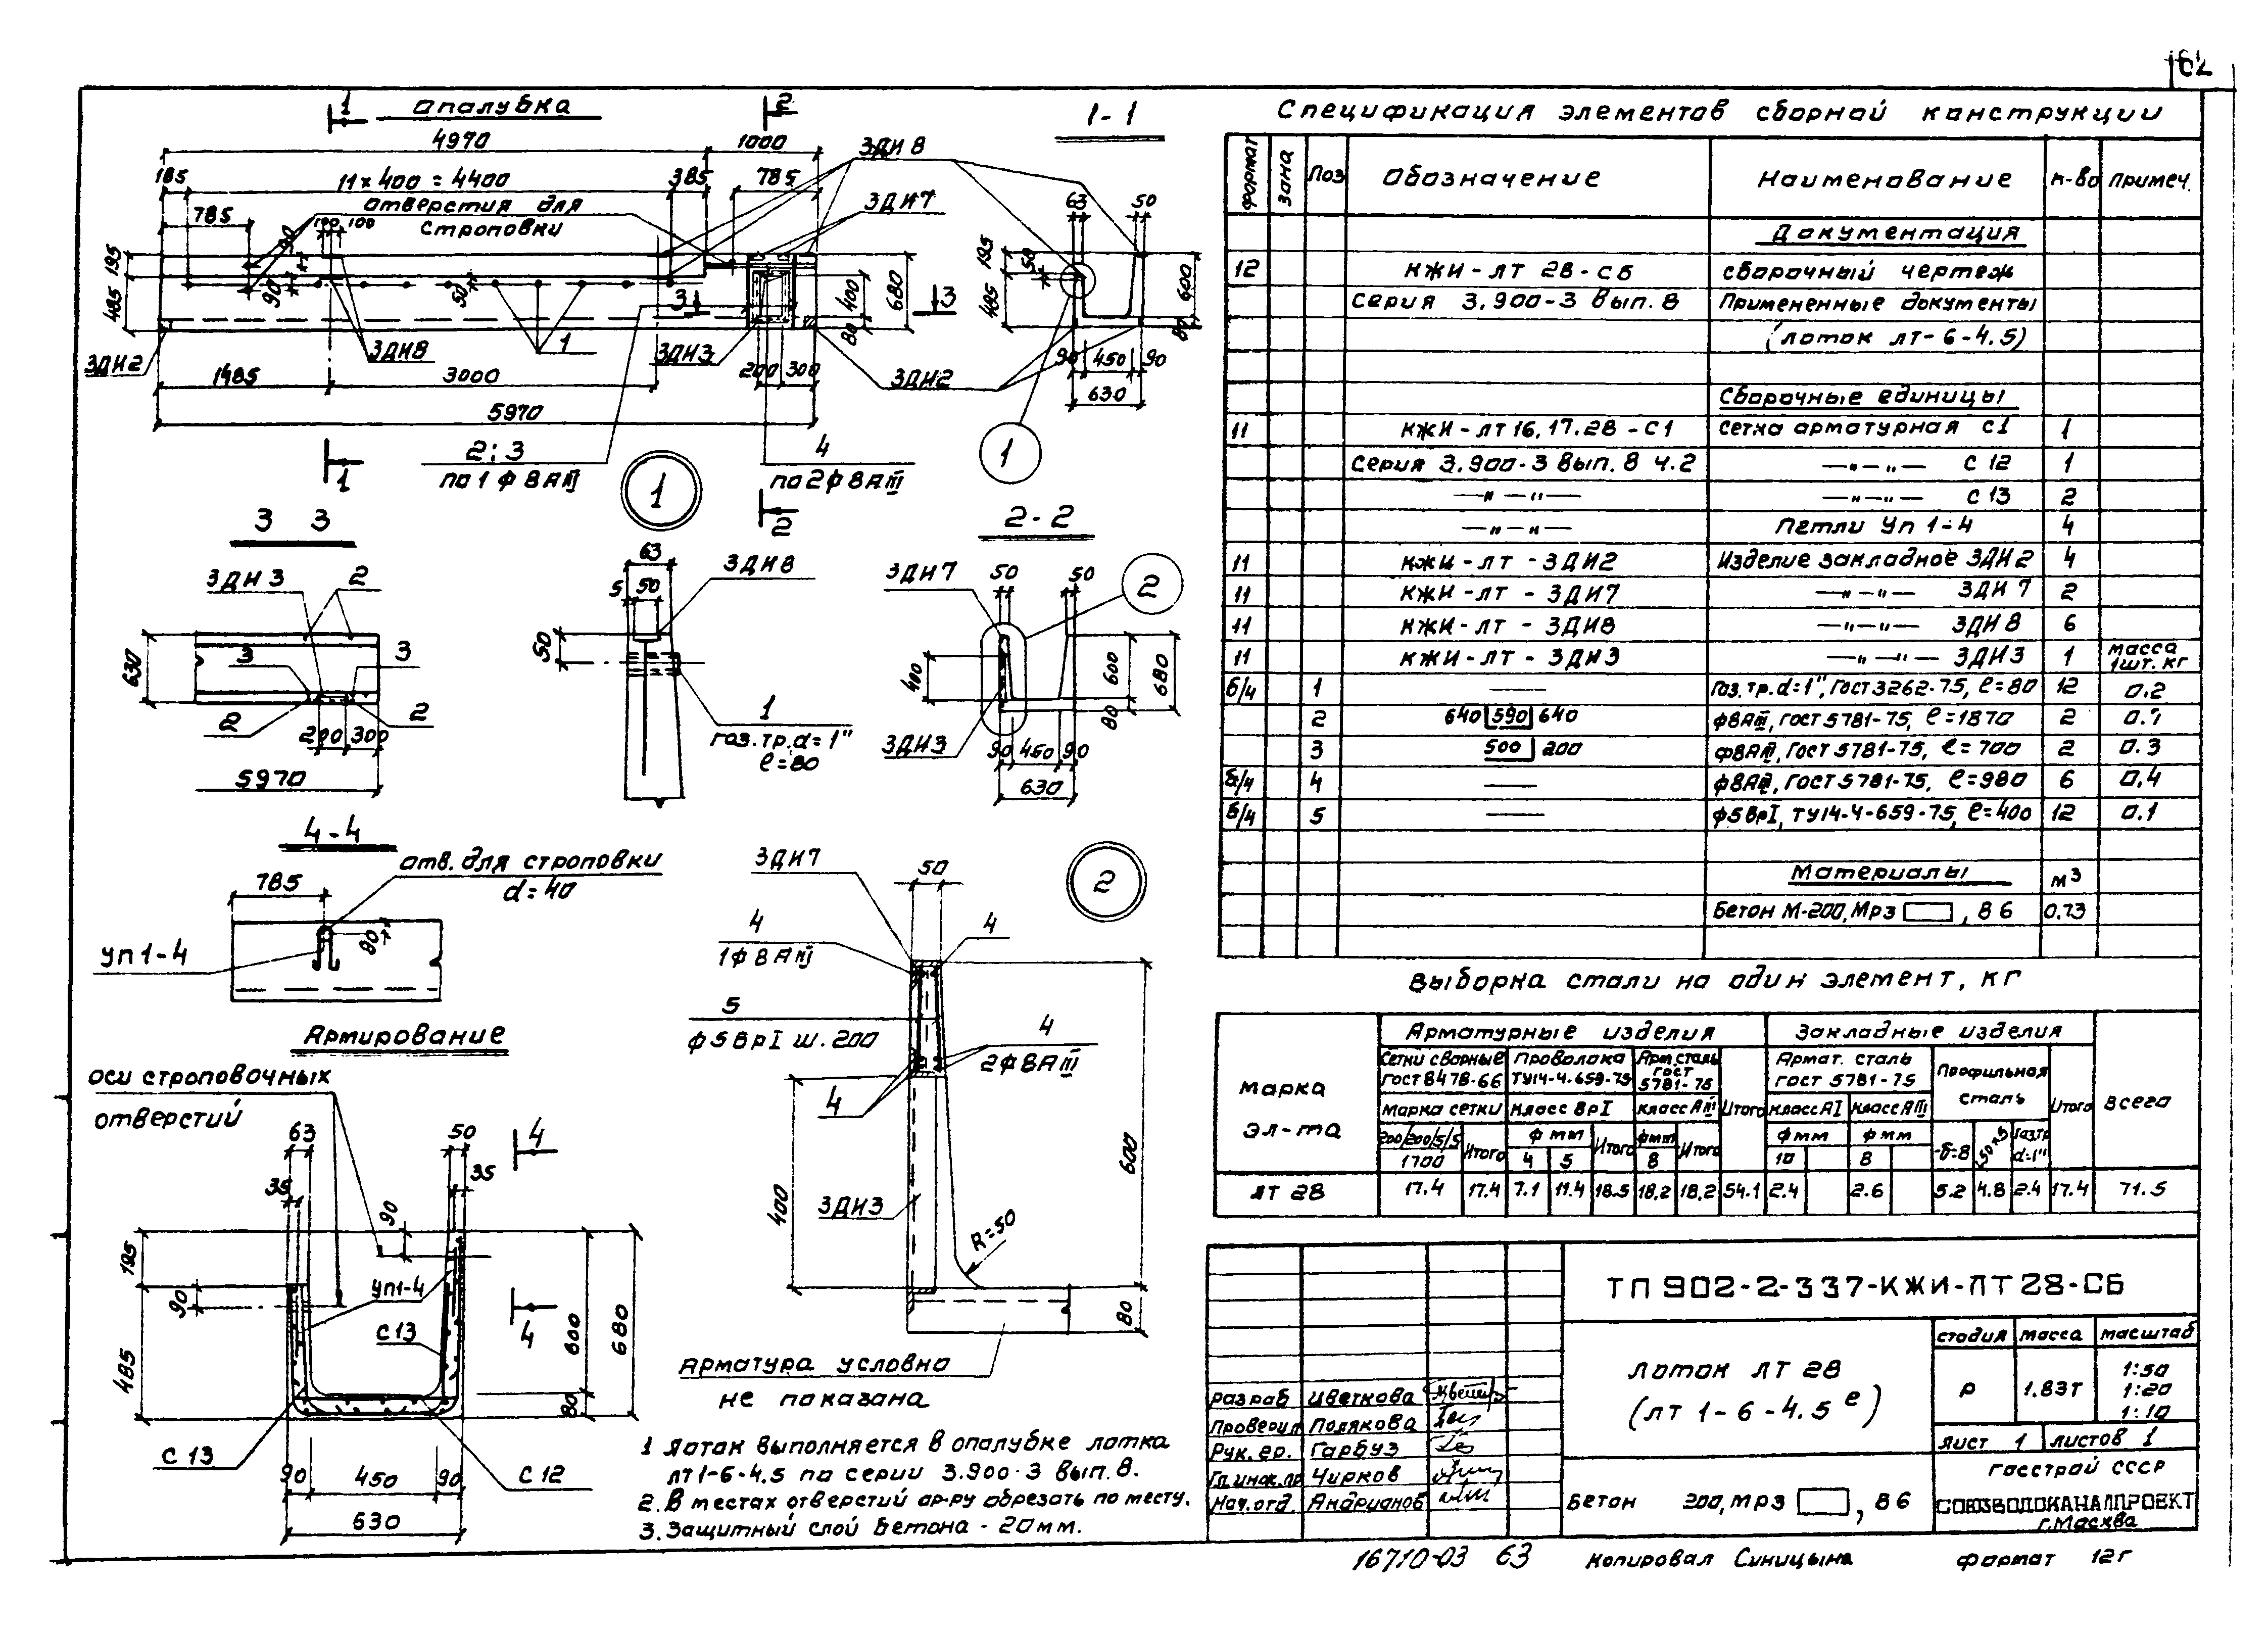 62
Опалубка
1
2
4970
1000
ЗДИ 8
185
11×400=4400
385
785
785
отверстия для
строповки
100
100
90
ЗДИ7
195
485
90
50
3
400
680
3
80
ЗДИ2
ЗДИ8
1
ЗДИ3
200
300
ЗДИ2
1485
3000
5970
2; 3
по 1 ф 8 АIII
4
по 2ф 8АIII
1
2
1-1
63
50
195
50
485
600
80
90
450
90
630
1
3 3
ЗДИ 3
2
630
3
3
2
2
200
300
5970
1
63
ЗДИ8
5
50
50
1
газ.тр.d=1"
ℓ=80
2-2
ЗДИ7
50
50
2
400
600
680
80
ЗДИ3
90
450
90
630
4-4
785
отв. для строповки
d=40
90
УП1-4
Армирование
оси строповочных
отверстий
63
50
4
35
35
90
195
90
УП1-4
С13
4
600
680
485
80
С 13
С 12
90
450
90
630
2
ЗДИ7
50
4
1ф 8 АIII
4
5
ф5ВрI ш.200
4
2ф8АIII
4
400
600
ЗДИ3
R=50
80
Арматура условно
не показана
1 Лоток выполняется в опалубке лотка
лт1-6-4.5 по серии 3.900-3 вып. 8.
2. В местах отверстий ар-ру обрезать по месту.
3. Защитный слой бетона - 20мм.
Спецификация элементов сборной конструкции
Формат Зона Поз Обозначение Наименование К-во Примеч.
Документация
12 КЖИ-ЛТ 28-СБ Сборочный чертеж
Серия 3.900-3 вып. 8 Примененные документы
(лоток лт-6-4.5)
Сборочные единицы
11 КЖИ-ЛТ16,17,28-С1 Сетка арматурная С1 1
Серия 3.900-3 вып. 8 ч.2 —„—„— С 12 1
—„—„— —„—„— С 13 2
—„—„— Петли Уп 1-4 4
11 КЖИ-ЛТ-ЗДИ2 Изделие закладное ЗДИ2 4
11 КЖИ-ЛТ-ЗДИ7 —„—„— ЗДИ 7 2
11 КЖИ-ЛТ-ЗДИ8 —„—„— ЗДИ 8 6
11 КЖИ-ЛТ-ЗДИ3 —„—„— ЗДИ3 1 масса 1шт. кг
б/ч 1 — Газ.тр.d=1", ГОСТ3262-75, ℓ=80 12 0.2
2 640 590 640 ф8АIII, ГОСТ5781-75, ℓ=1870 2
3 500 200 ф8АIII, ГОСТ5781-75, ℓ=700 2 0.3
б/ч 4 — ф8АIII, ГОСТ5781-75, ℓ=980 6 0.4
б/ч 5 — ф5ВрI, ТУ14-4-659-75, ℓ=400 12 0.1
Материалы м3
Бетон М-200, Мрз , В6 0.73
Выборка стали на один элемент, кг
Марка эл-та
Арматурные изделия
Закладные изделия
Всего
Сетки сварные ГОСТ8478-66
Проволока ТУ14-4-659-75
Арм.сталь ГОСТ 5781-75
Итого
Армат. сталь ГОСТ 5781-75
Профильная сталь
Итого
Марка сетки
Класс ВрI
Класс АIII
Класс АI
Класс АIII
200/200/5/5 1700
Итого
ф мм
4 5
Итого
ф мм
8
Итого
ф мм
10
ф мм
8
-δ=8
Газ.тр d=1"
ЛТ 28 17.4 17.4 7.1 11.4 18.5 18.2 18.2 54.1 2.4 2.6 5.2 4.8 2.4 17.4 71.5
ТП 902-2-337-КЖИ-ЛТ28-СБ
Лоток ЛТ 28
(лт 1-6-4.5 е)
стадия масса масштаб
Р 1.83т 1:50
1:20
1:10
лист 1 листов 1
Разраб Цветкова
Проверил Полякова
Рук. гр. Гарбуз
Гл.инж.пр Чирков
Нач.отд. Андрианов
Бетон 200, Мрз , В6
Госстрой СССР
СОЮЗВОДОКАНАЛПРОЕКТ
г.Москва
16710-03 63
Копировал Синицына
Формат 12г